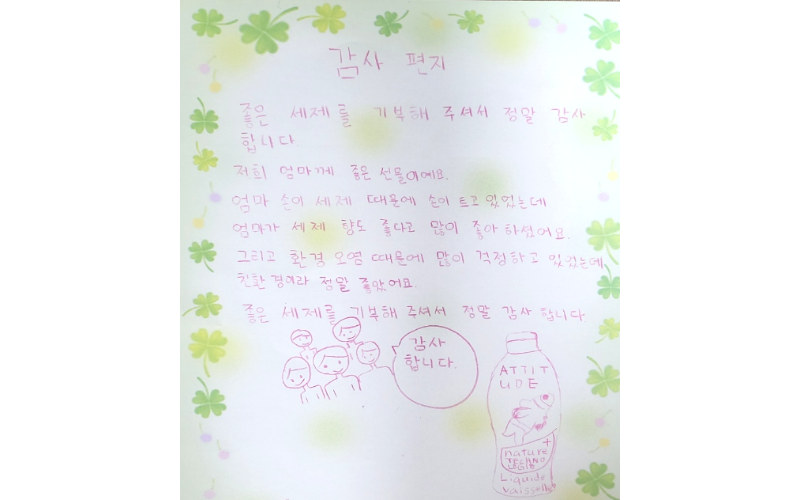 감사 편지
좋은 세제를 기부해 주셔서 정말 감사
합니다
저희 엄마께 좋은 선물이에요.
엄마 손이 세제 때문에 손이 트고 있었는데
엄마가 세제 향도 좋다고 많이 좋아 하셨어요.
그리고 환경 오염 때문에 많이 걱정하고 있었는데,
친환경이라 정말 좋았어요.
좋은 세제를 기부해 주셔서 정말 감사 합니다
감사
합니다.
ATTIT
UDE
nature +
TECHNO
LOGIE
Liquide
vaisselle